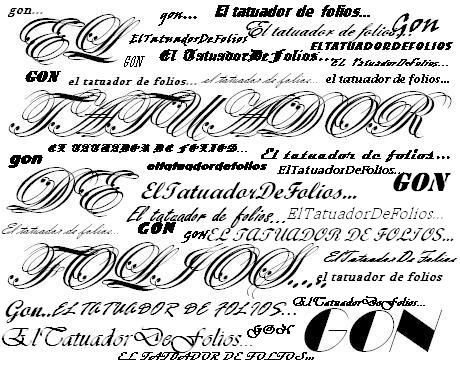 gon...
gon...
El tatuador de folios...
El tatuador de folios...
Gon
EL
ElTatuadorDeFolios...
ELTATUADORDEFOLIOS
GON
El TatuadorDeFolios...
EL TatuadorDeFolios...
GON
el tatuador de folios...
el tatuador de folios...
el tatuador de folios...
TATUADOR
EL TATUADOR DE FOLIOS...
El tatuador de folios...
gon
eltatuadordefolios
ElTatuadorDeFolios...
GON
DE
ElTatuadorDeFolios...
El tatuador de folios...
ElTatuadorDeFolios...
El tatuador de folios...
GON
GON
EL TATUADOR DE FOLIOS...
FOLIOS...
El TatuadorDeFolios...
el tatuador de folios
Gon..
EL TATUADOR DE FOLIOS...
ElTatuadorDeFolios...
ElTatuadorDeFolios...
GON
GON
EL TATUADOR DE FOLIOS...